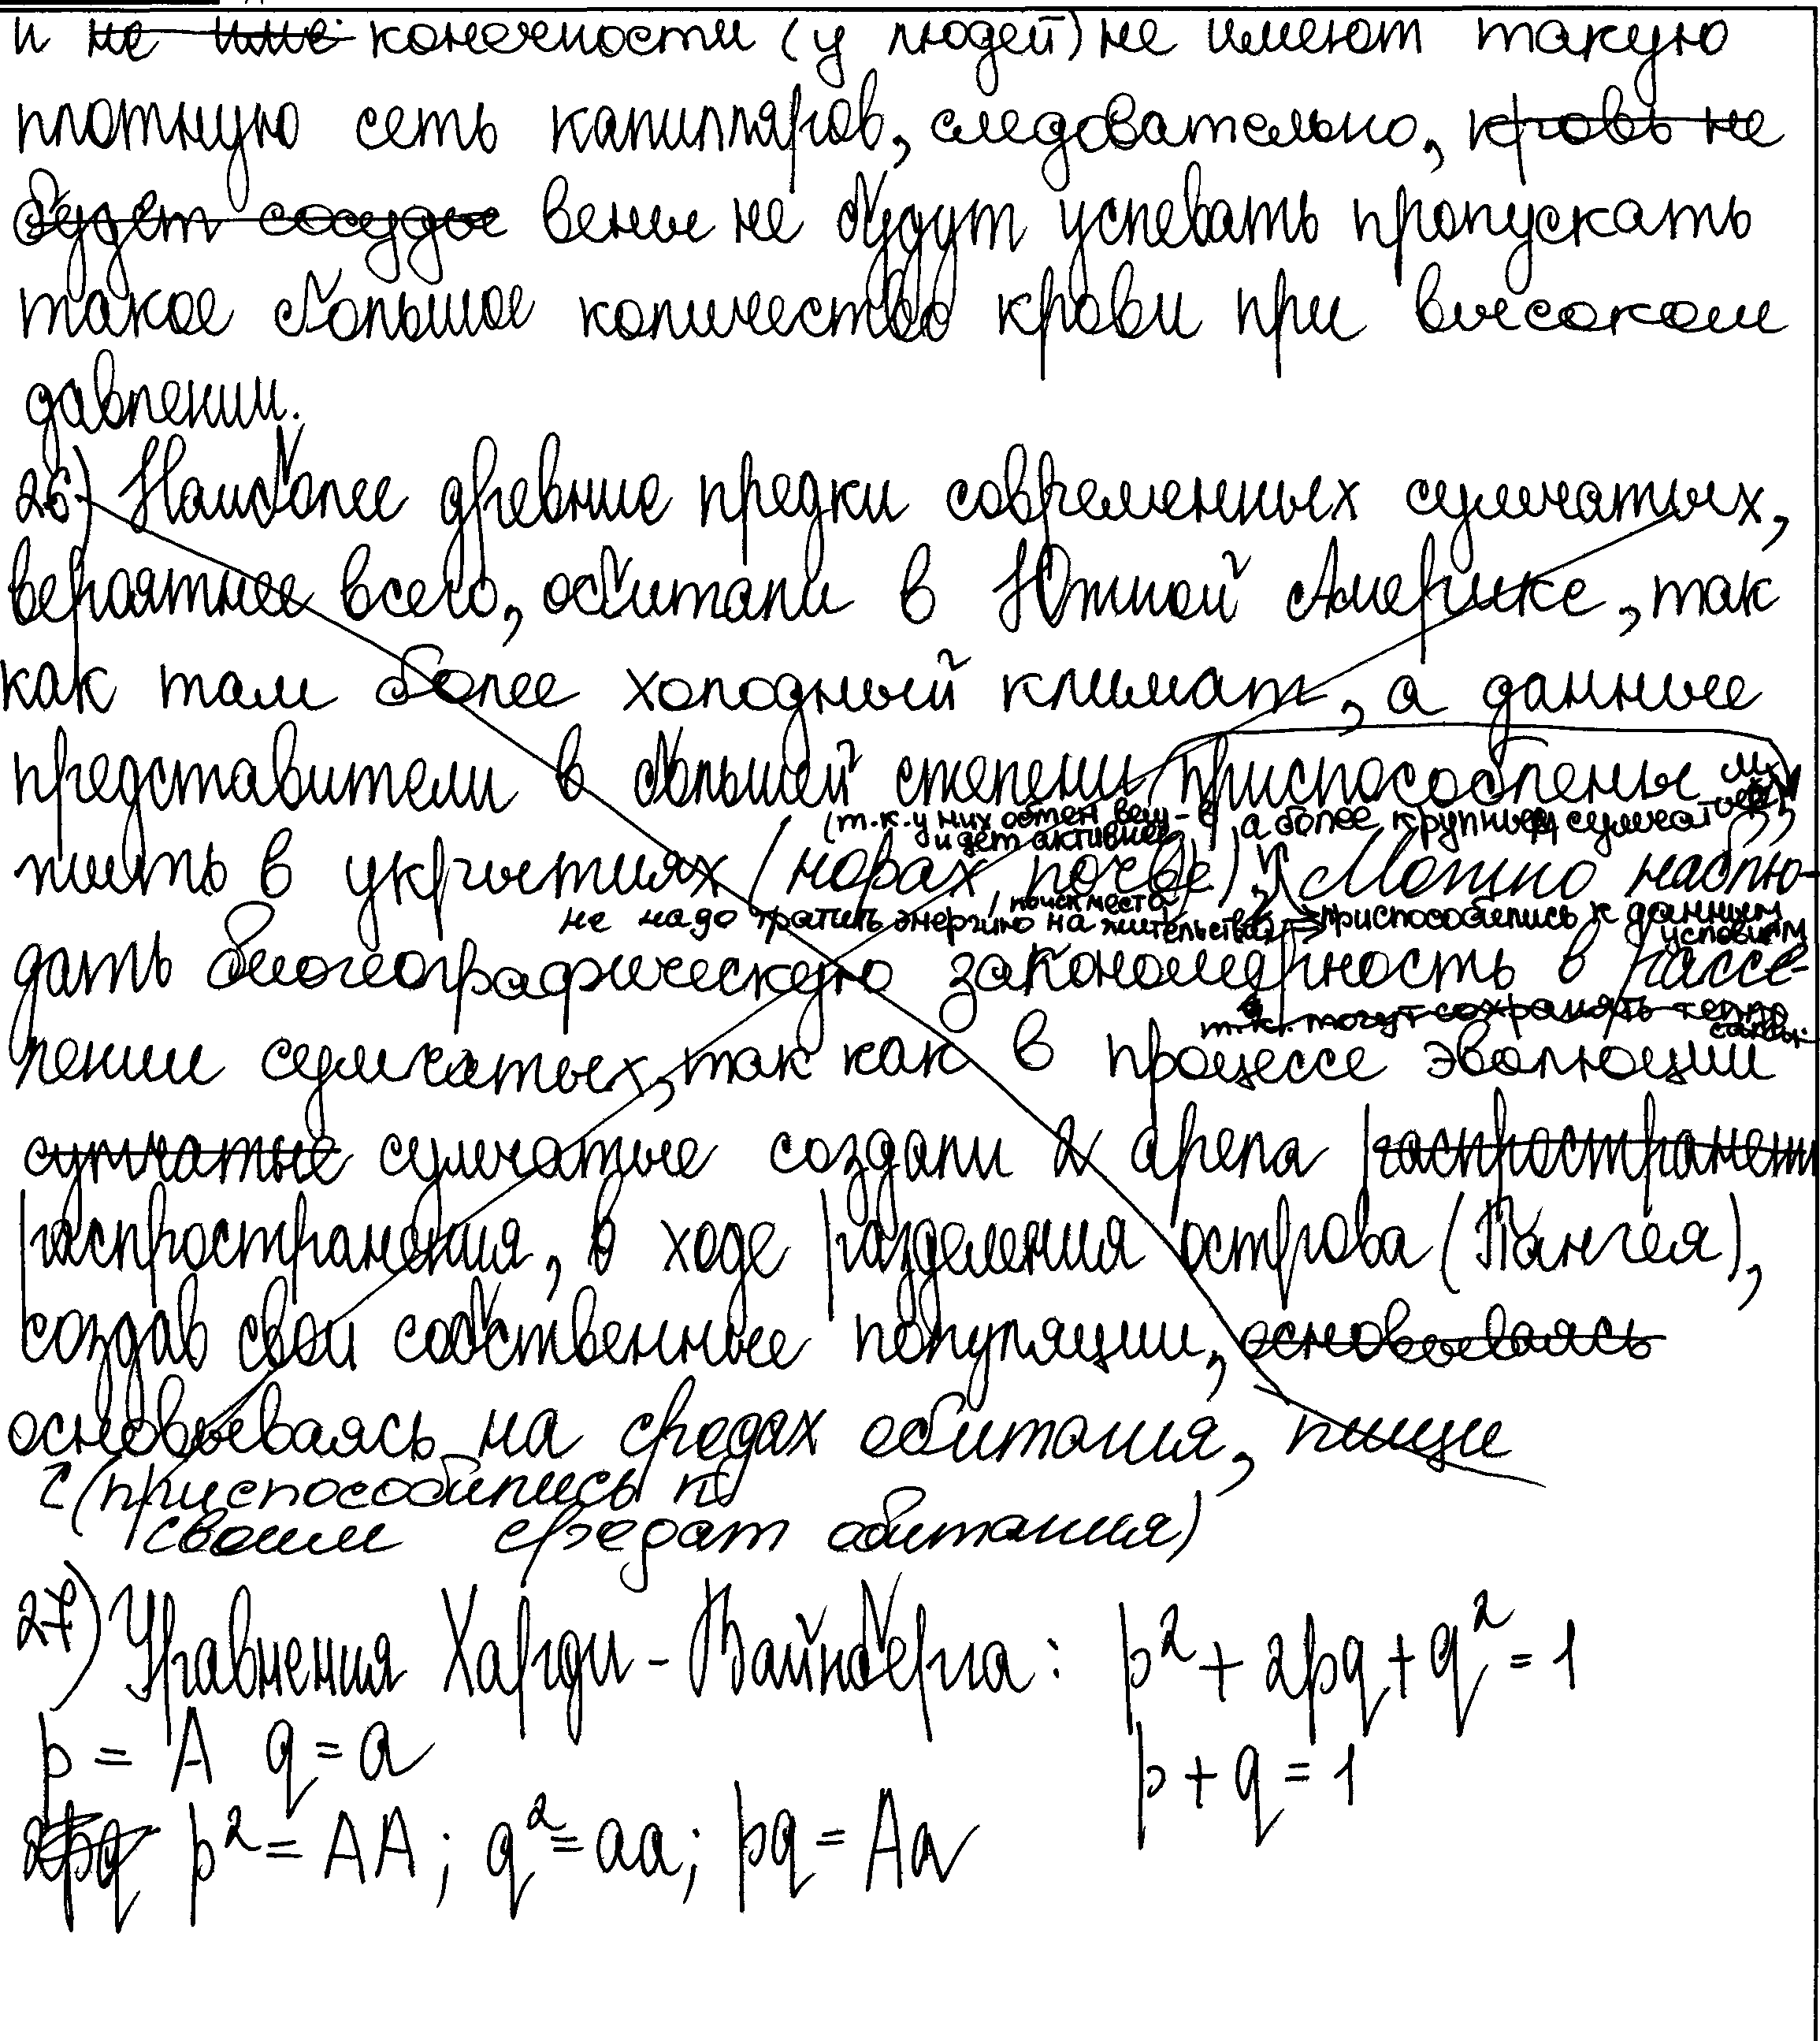 и не име конечности (у людей) не имеют такую
плотную сеть капилляров, следовательно, кровь не
будет сосуды вены не будут успевать пропускать
такое большое количество крови при высоком
давлении.
26) Наиболее древние предки современных сумчатых,
вероятнее всего, обитали в Южной Америке, так
как там более холодный климат, а данные
представители в большей степени приспособлены
(т.к. у них обмен вещ-в а более крупные сумчатые
идет активнее)
жить в укрытиях (норах, почве). Можно наблю-
поиск места
не надо тратить энергию на жительства) => приспособились к данным
условиям
дать биогеографическую закономерность в рассе-
т.к. могут сохранять тепло
лении сумчатых, так как в процессе эволюции
сумчатые сумчатые создали 2 ареала распространени
распространения, в ходе разделения острова (Пангея),
создав свои собственные популяции, основываясь
основываясь на средах обитания, пищи
(приспособились к
своим средам обитания)
27) Уравнения Харди-Вайнберга: p² + 2pq + q² = 1
p = A q = a
p + q = 1
2pq p² = AA; q² = aa; pq = Aa